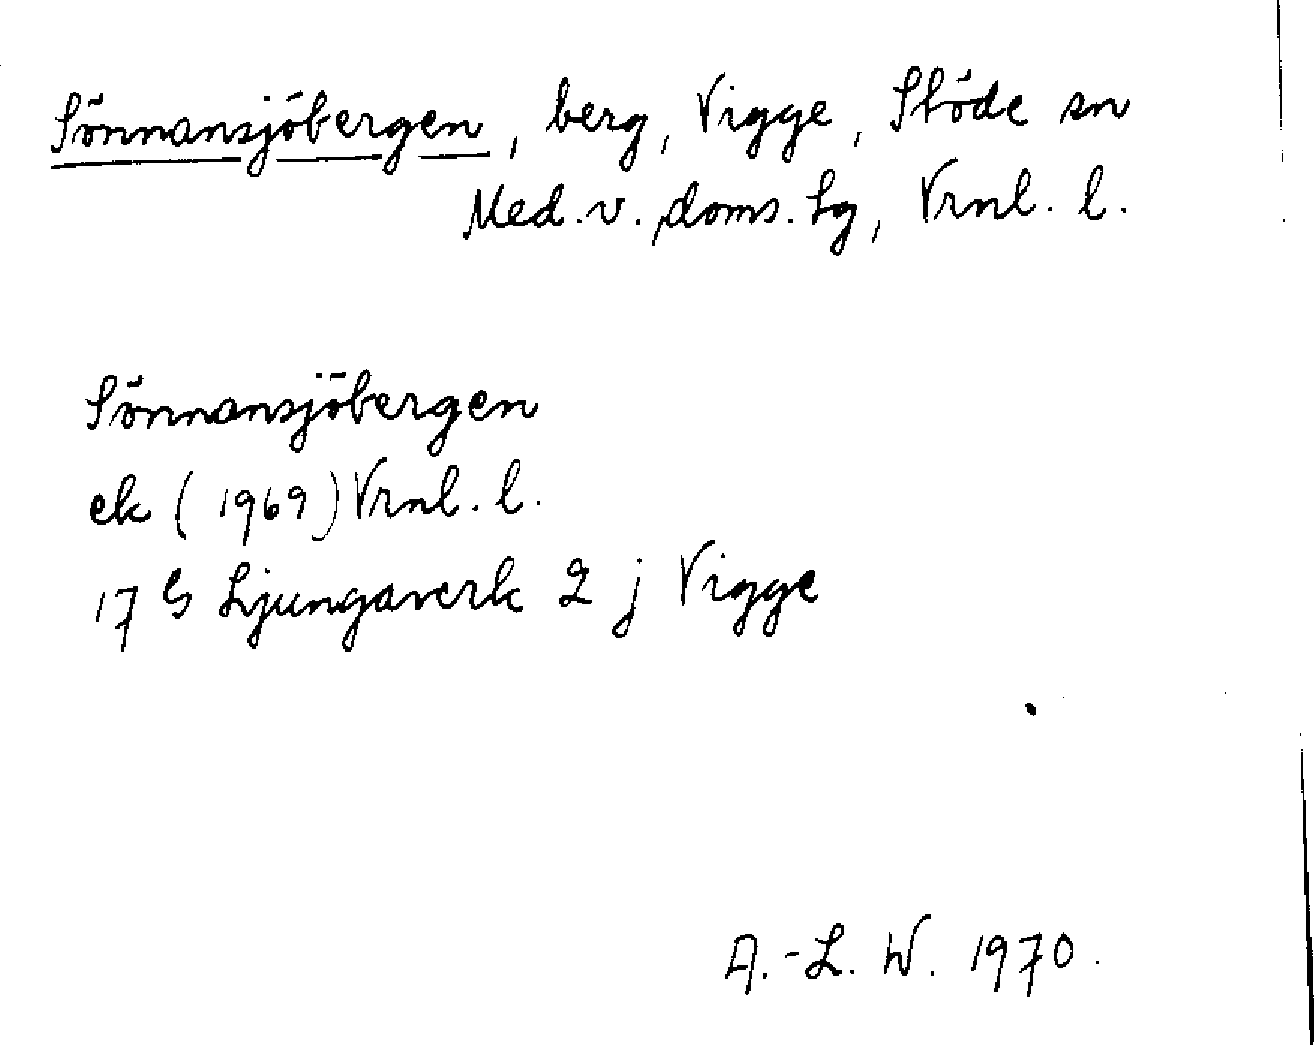 Sönnansjöbergen, berg, Vigge, Stöde sn
Med. v. doms. lg, Vrnl. l.
Sönnansjöbergen
ek (1969) Vrnl. l.
17 G Ljungaverk 2 j Vigge
A.-L. W. 1970.